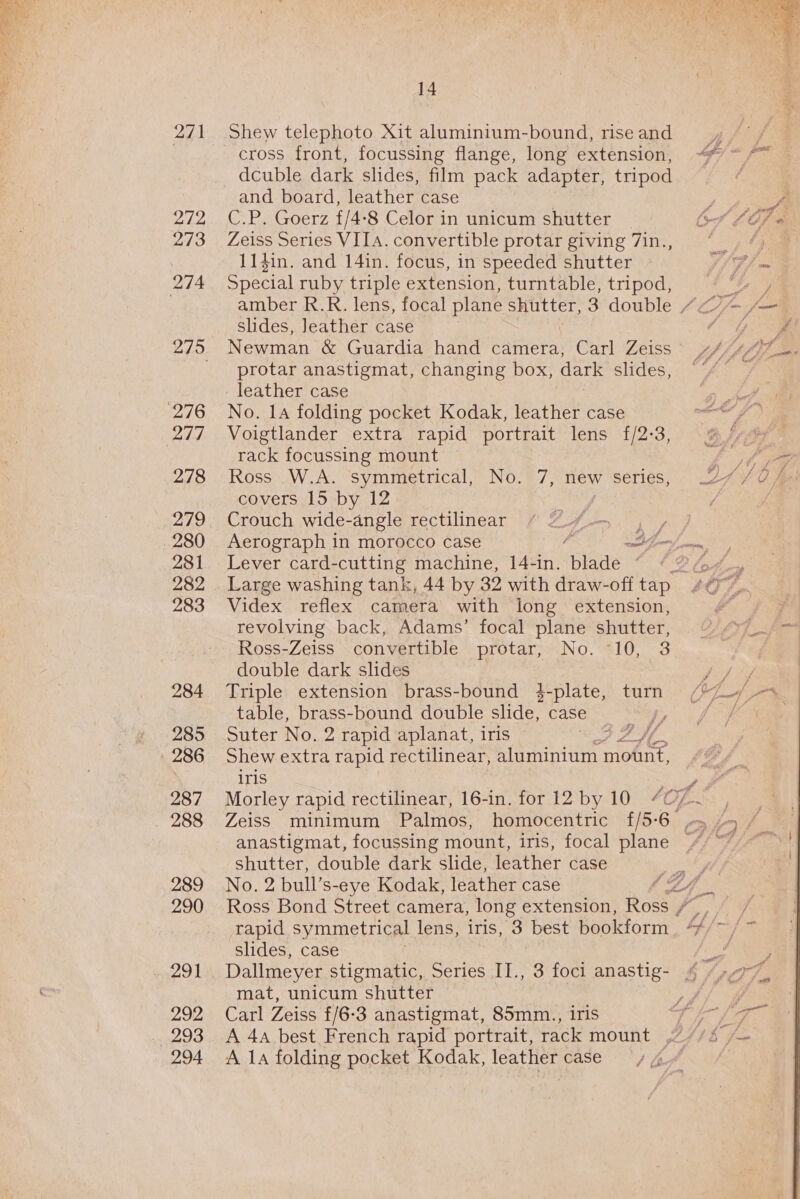 14
271 Shew telephoto Xit aluminium-bound, rise and
cross front, focussing flange, long extension,
dcuble dark slides, film pack adapter, tripod
and board, leather case
272 C.P. Goerz f/4·8 Celor in unicum shutter
273 Zeiss Series VIIA. convertible protar giving 7in.,
11½in. and 14in. focus, in speeded shutter
274 Special ruby triple extension, turntable, tripod,
amber R.R. lens, focal plane shutter, 3 double
slides, leather case
275 Newman & Guardia hand camera, Carl Zeiss
protar anastigmat, changing box, dark slides,
leather case
276 No. 1A folding pocket Kodak, leather case
277 Voigtlander extra rapid portrait lens f/2·3,
rack focussing mount
278 Ross W.A. symmetrical, No. 7, new series,
covers 15 by 12
279 Crouch wide-angle rectilinear
280 Aerograph in morocco case
281 Lever card-cutting machine, 14-in. blade
282 Large washing tank, 44 by 32 with draw-off tap
283 Videx reflex camera with long extension,
revolving back, Adams' focal plane shutter,
Ross-Zeiss convertible protar, No. 10, 3
double dark slides
284 Triple extension brass-bound ½-plate, turn
table, brass-bound double slide, case
285 Suter No. 2 rapid aplanat, iris
286 Shew extra rapid rectilinear, aluminium mount,
iris
287 Morley rapid rectilinear, 16-in. for 12 by 10
288 Zeiss minimum Palmos, homocentric f/5·6
anastigmat, focussing mount, iris, focal plane
shutter, double dark slide, leather case
289 No. 2 bull's-eye Kodak, leather case
290 Ross Bond Street camera, long extension, Ross
rapid symmetrical lens, iris, 3 best bookform
slides, case
291 Dallmeyer stigmatic, Series II., 3 foci anastig-
mat, unicum shutter
292 Carl Zeiss f/6·3 anastigmat, 85mm., iris
293 A 4A best French rapid portrait, rack mount
294 A 1A folding pocket Kodak, leather case